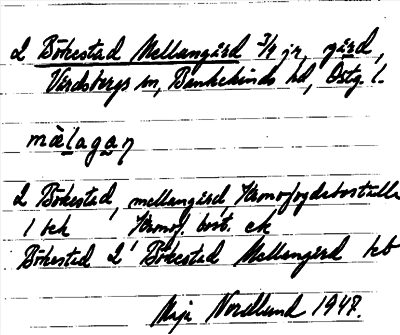 2 Bökestad Mellangård 3/4 jr, gård,
Vårdsbergs sn, Bankekinds hd, Östg. l.
mälagan
2 Bökestad, mellangård, Kronofogdeboställe
1 Kronof. bost.
Bökestad 2 Bökestad Mellangård
Maja Nordlund 1947.